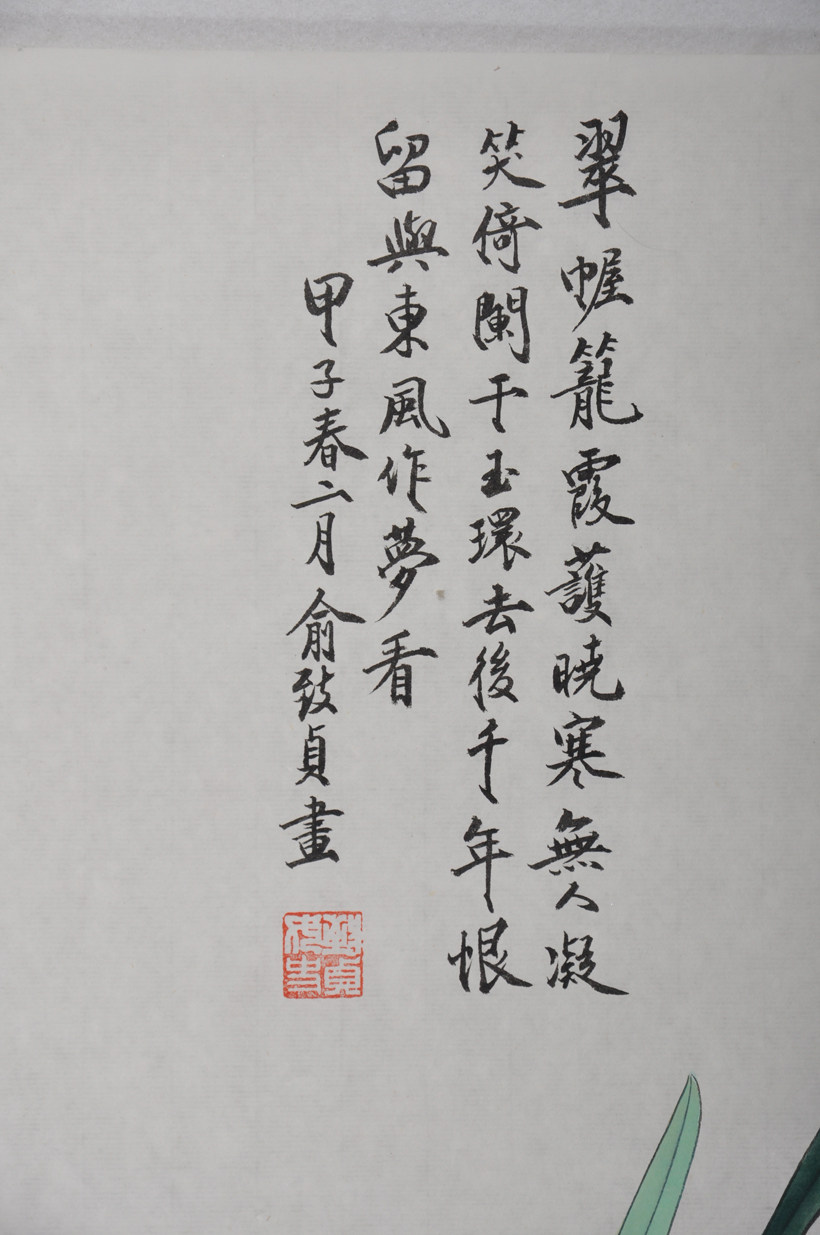 翠幄籠霞護曉寒無人凝
笑倚闌干玉環去後千年恨
留與東風作夢看
甲子春二月俞致貞畫